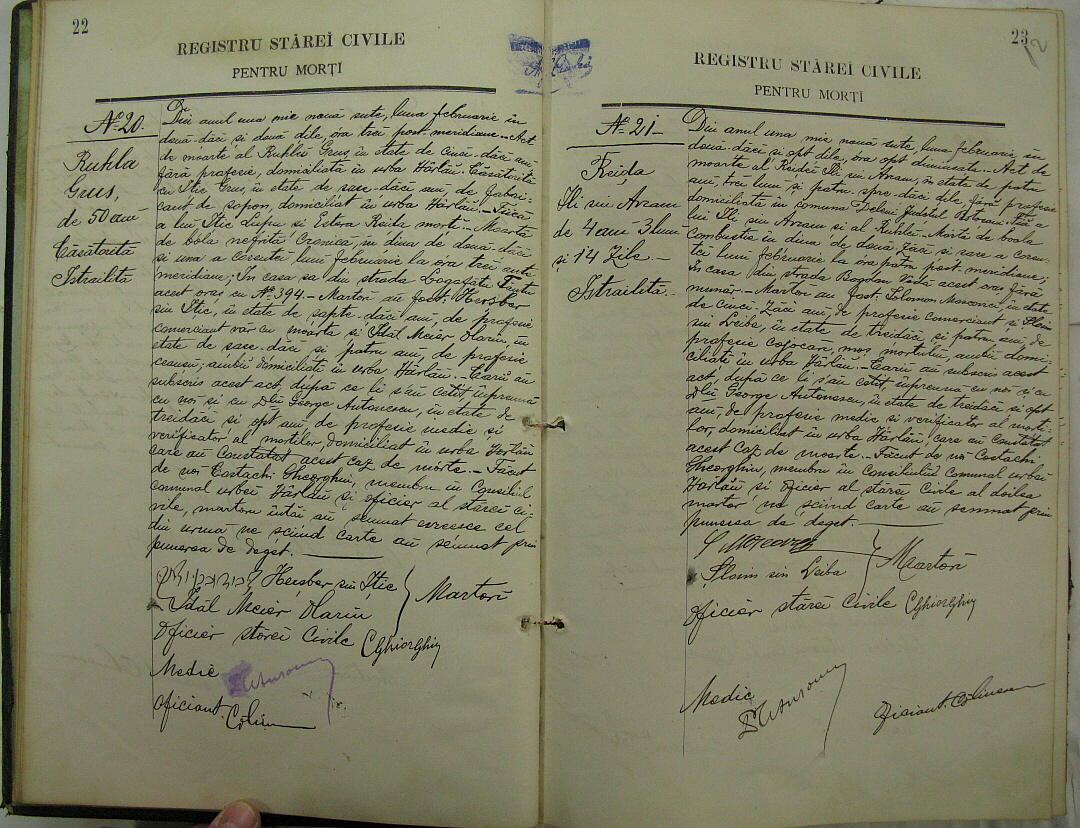 22
REGISTRU STĂREĬ CIVILE
PENTRU MORȚI
No 20.
Ruhla
Grus,
de 50 ani
Căsătorită
Israilită
Din anul una mie nouă sute, luna februarie în
două-dăci și două dile, ora trei post meridiane. – Act
de moarte al Ruhlei Grus, în etate de cinci-dăci ani
fără profesie, domiciliată în urba Hărlău. Căsătorită
cu Ițic Grus, în etate de șase-dăci ani, de fabri-
cant de sopon, domiciliat în urba Hărlău. – Fiică
a lui Ițic Lupu și Estera Reila morți. – Moartă
de bóla nefrita Cronica, în diua de două-dăci
și una a corentei luni februarie la ora trei ante
meridiane; În casa sa din strada Logofătu Tăutu
acest oraș cu No 394. – Martori au fost. Herșber
sin Ițic, în etate de șapte-dăci ani, de profesie
comerciant văr cu moarta și Idăl Meier Olariu, în
etate de șase-dăci și patru ani, de profesie
ceausu; ambii domiciliati în urba Hărlău. – Carii au
subscris acest act, după ce li s'au cetit împreună
cu noi și cu Dlu George Antonescu, în etate de
treidăci și opt ani, de profesie medic și
verificator al morților domiciliat în urba Hărlău
care au Constatat acest caz de mórte. – Făcut
de noi Costachi Gheorghiu, membru în Consiliul
comunal urbei Hărlău și oficier al stărei ci-
vile, martoru întăi au semnat evreesce cel
din urmă ne sciind carte au semnat prin
punerea de deget.
Herșber sin Ițic
Idăl Meier Olariu
Martori
Oficier stărei Civile CGhiorghiu
Medic
Oficiant
23
REGISTRU STĂREĬ CIVILE
PENTRU MORȚI
No 21
Reița
Ili sin Avram
de 4 ani 3 luni
și 14 Zile. –
Israilită. –
Din anul una mie, nouă sute, luna februarie, în
două-dăci și opt dile, ora opt dimineata. – Act de
moarte al Reiței Ili sin Avram, în etate de patru
ani, trei luni și patru-spre-dăci dile, fără profesie
domiciliată în comuna Deleni Judetul Botosani. Fiică a
lui Ili sin Avram și al Ruhla. – Mórtă de boala
Combustie în diua de două-Zăci și șase a coren-
tei luni februarie la ora patru post meridiane;
În casa din strada Bogdan Vodă acest oraș fără
număr. – Martori au fost. Solomon Moscovici, în etate
de cinci-Zăci ani, de profesie comerciant și Șloim
sin Leiba, în etate de treidăci și patru ani, de
profesie cojocar, moș mortului, ambii domi-
ciliați în urba Hărlău. – Carii au subscris acest
act, după ce li s'au cetit împreună cu noi și cu
Dlu George Antonescu, în etate de treidăci și opt
ani, de profesie medic și verificator al morți-
lor, domiciliat în urba Hărlău, care au Constatat
acest Caz de moarte. – Făcut de noi Costachi
Gheorghiu, membru în Consiliul comunal urbei
Hărlău și oficier al stărei Civile al doilea
martor ne sciind carte au semnat prin
punerea de deget.
Șloim sin Leiba
Martori
Oficier stărei Civile CGhiorghiu
Medic
Oficiant